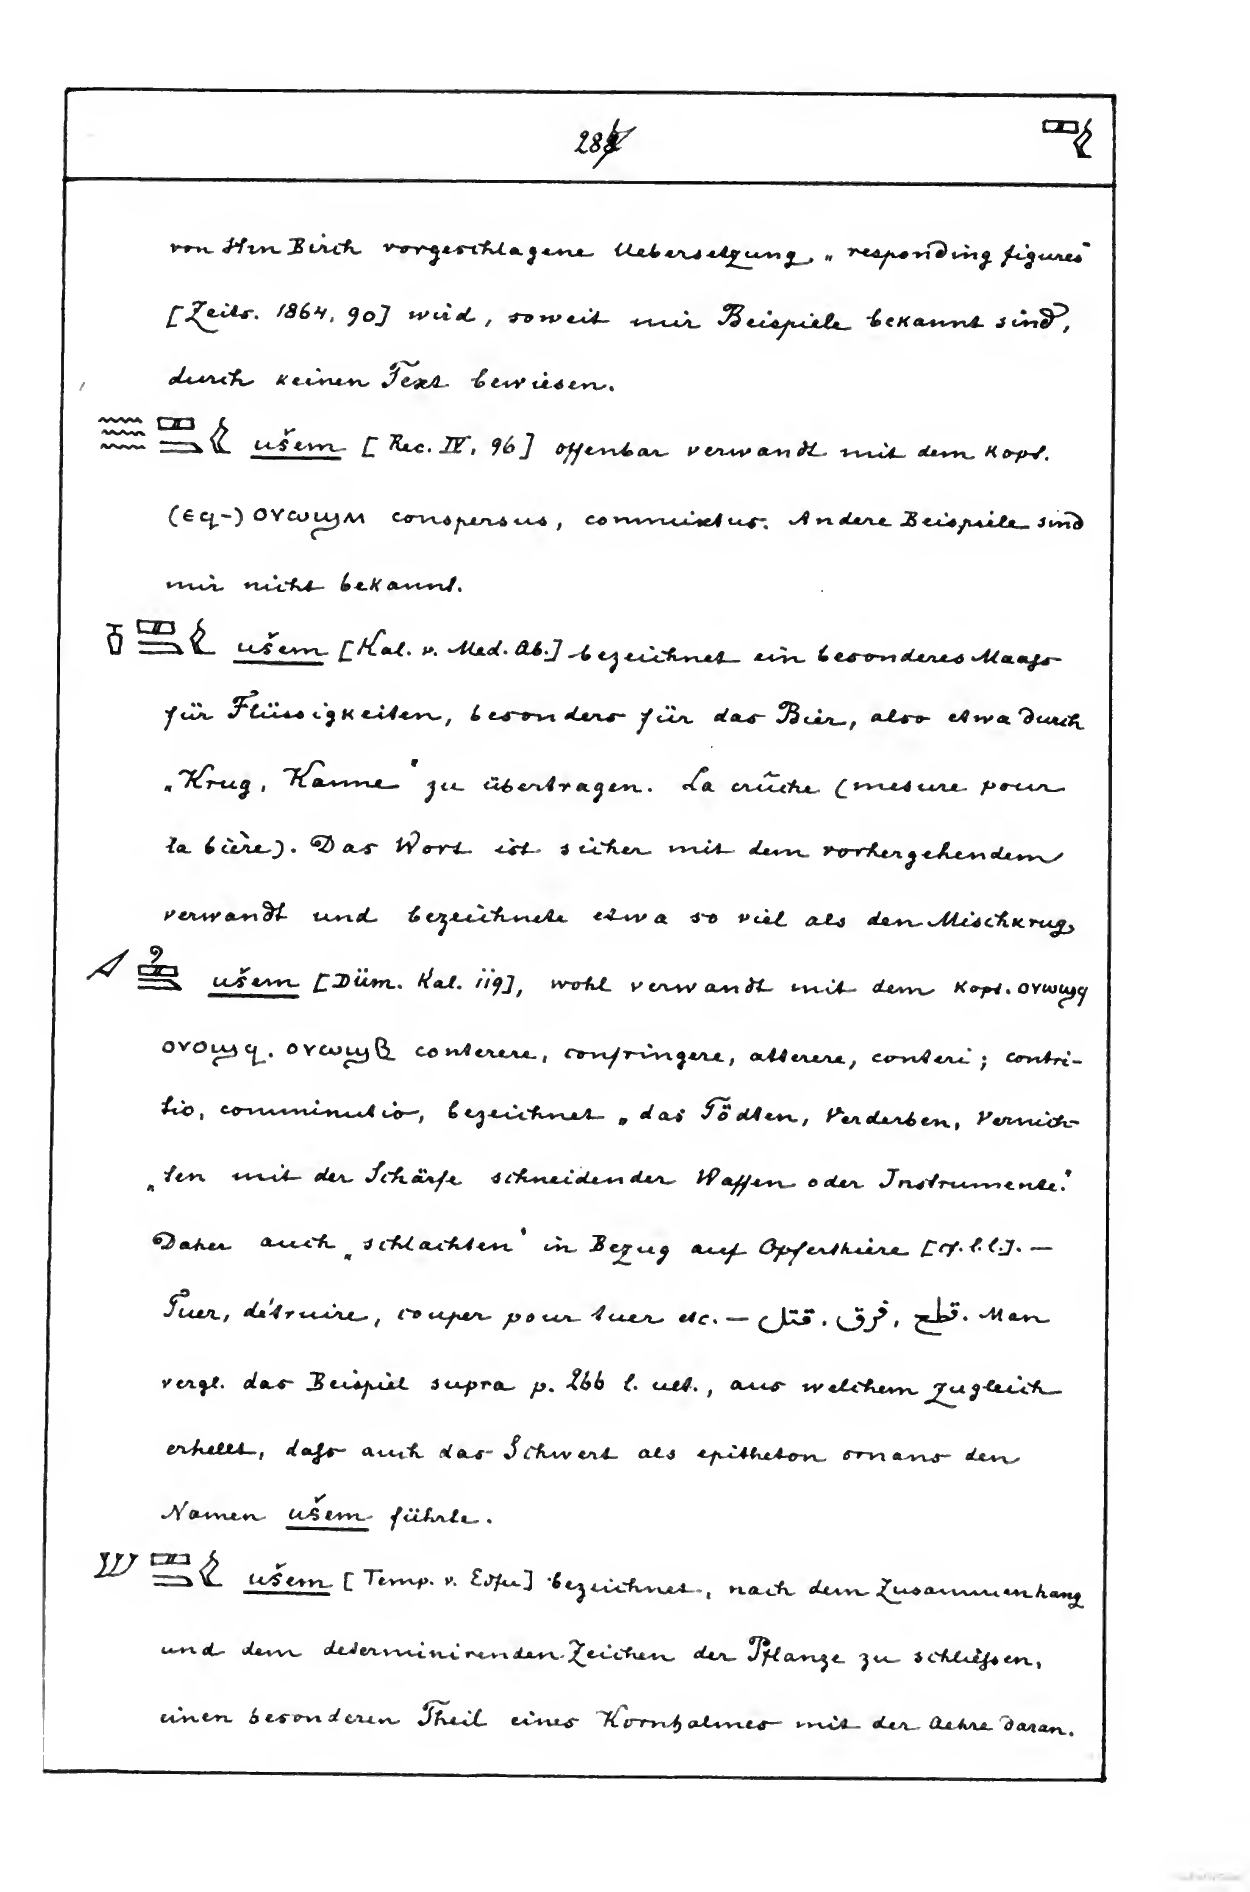 288
von Hrn Birch vorgeschlagene Uebersetzung „responding figures“
[Zeits. 1864, 90] wird, soweit mir Beispiele bekannt sind,
durch keinen Text bewiesen.
ušem [Rec. IV, 96] offenbar verwandt mit dem Kopt.
(ⲉϥ-) ⲟⲩⲱϣⲙ conspersus, commixtus. Andere Beispiele sind
mir nicht bekannt.
ušem [Kal. v. Med. Ab.] bezeichnet ein besonderes Maaß
für Flüssigkeiten, besonders für das Bier, also etwa durch
„Krug, Kanne“ zu übertragen. La crûche (mesure pour
la bière). Das Wort ist sicher mit dem vorhergehendem
verwandt und bezeichnete etwa so viel als den Mischkrug.
ušem [Düm. Kal. 119], wohl verwandt mit dem Kopt. ⲟⲩⲱϣϥ
ⲟⲩⲟϣϥ, ⲟⲩⲱϣⲃ conterere, confringere, atterere, conteri; contri-
tio, comminutio, bezeichnet „das Tödten, Verderben, Vernich-
„ten mit der Schärfe schneidender Waffen oder Instrumente.“
Daher auch „schlachten“ in Bezug auf Opferthiere [cf. l.l.]. —
Tuer, détruire, couper pour tuer etc. — قطع , فرق , قتل. Man
vergl. das Beispiel supra p. 266 l. ult., aus welchem zugleich
erhellt, daß auch das Schwert als epitheton ornans den
Namen ušem führte.
ušem [Temp. v. Edfu] bezeichnet, nach dem Zusammenhang
und dem determinirenden Zeichen der Pflanze zu schließen,
einen besonderen Theil eines Kornhalmes mit der Aehre daran.